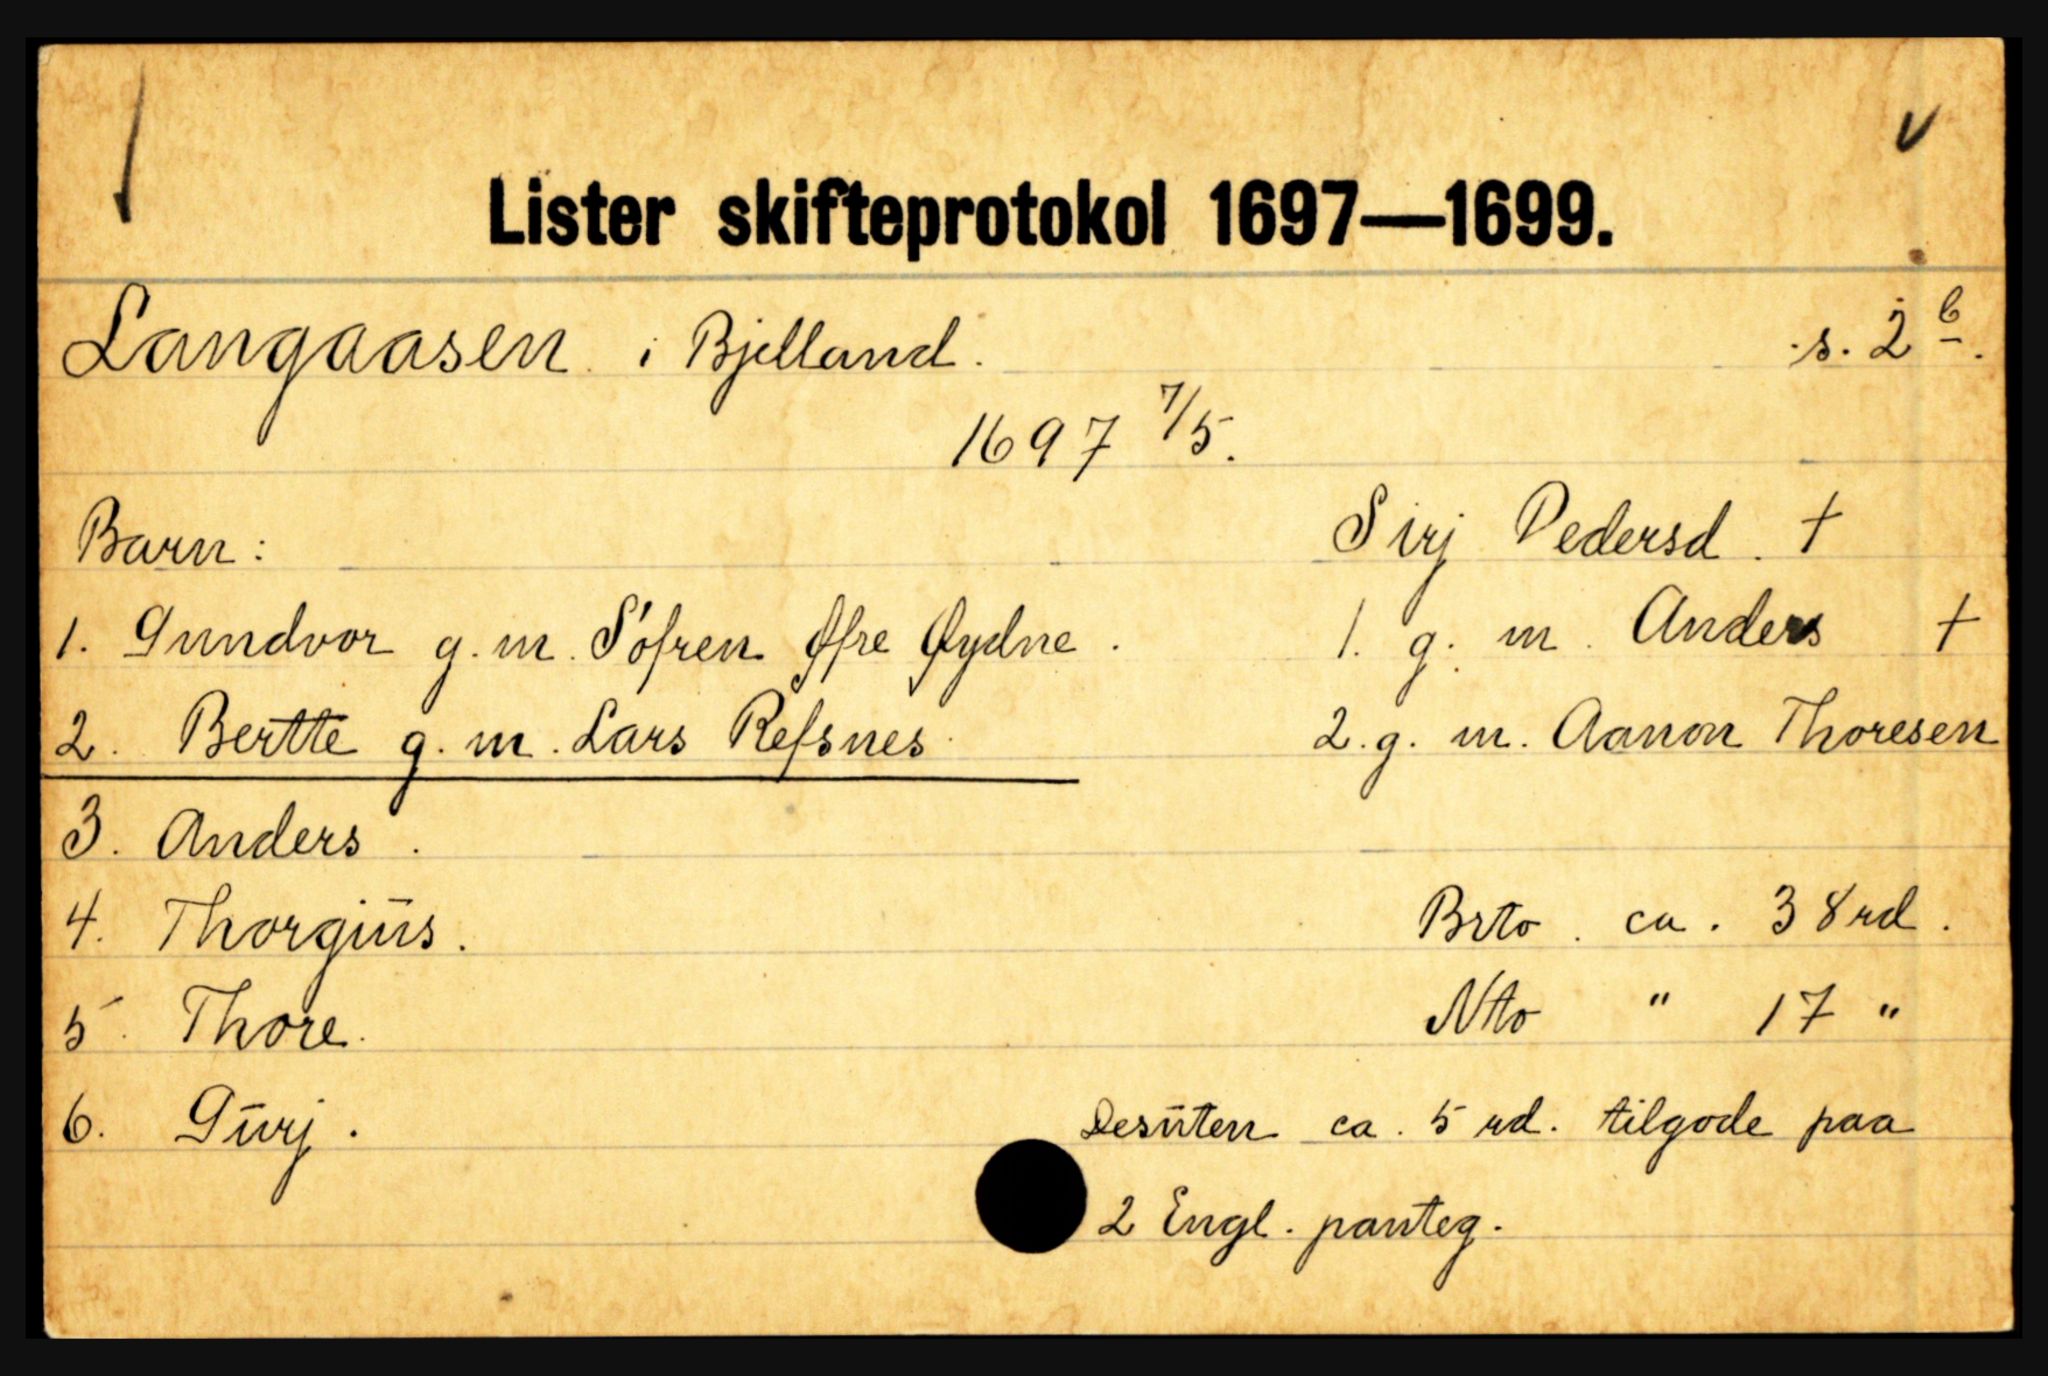 Lister skifteprotokol 1697—1699.
Langaasen i Bjelland. s. 2 b.
1697 7/5.
Barn: Sirj Pedersd. †
1. Gundvor g.m. Söfren Øfre Øydne. 1. g. m. Anders †
2. Bertte g.m. Lars Refsnes 2. g. m. Aanon Thoresen
3. Anders.
4. Thorgiüs. Brto. ca. 38 rd.
5. Thore. Nto " 17 "
6. Gürj. Desüten ca. 5 rd. tilgode paa
2 Engl. panteg.